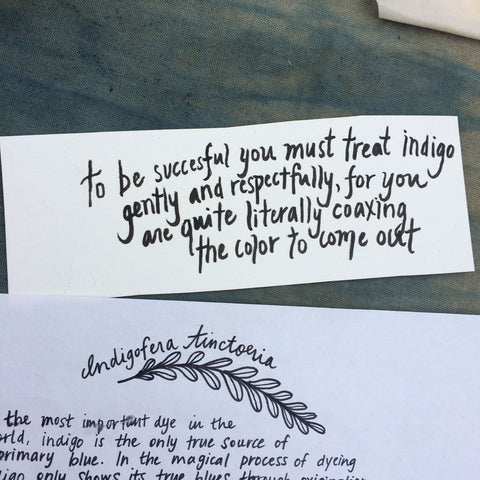 to be succesful you must treat indigo
gently and respectfully, for you
are quite literally coaxing
the color to come out
Indigofera tinctoria
the most important dye in the
rld, indigo is the only true source of
primary blue. In the magical process of dyeing
digo only shows its true blues through